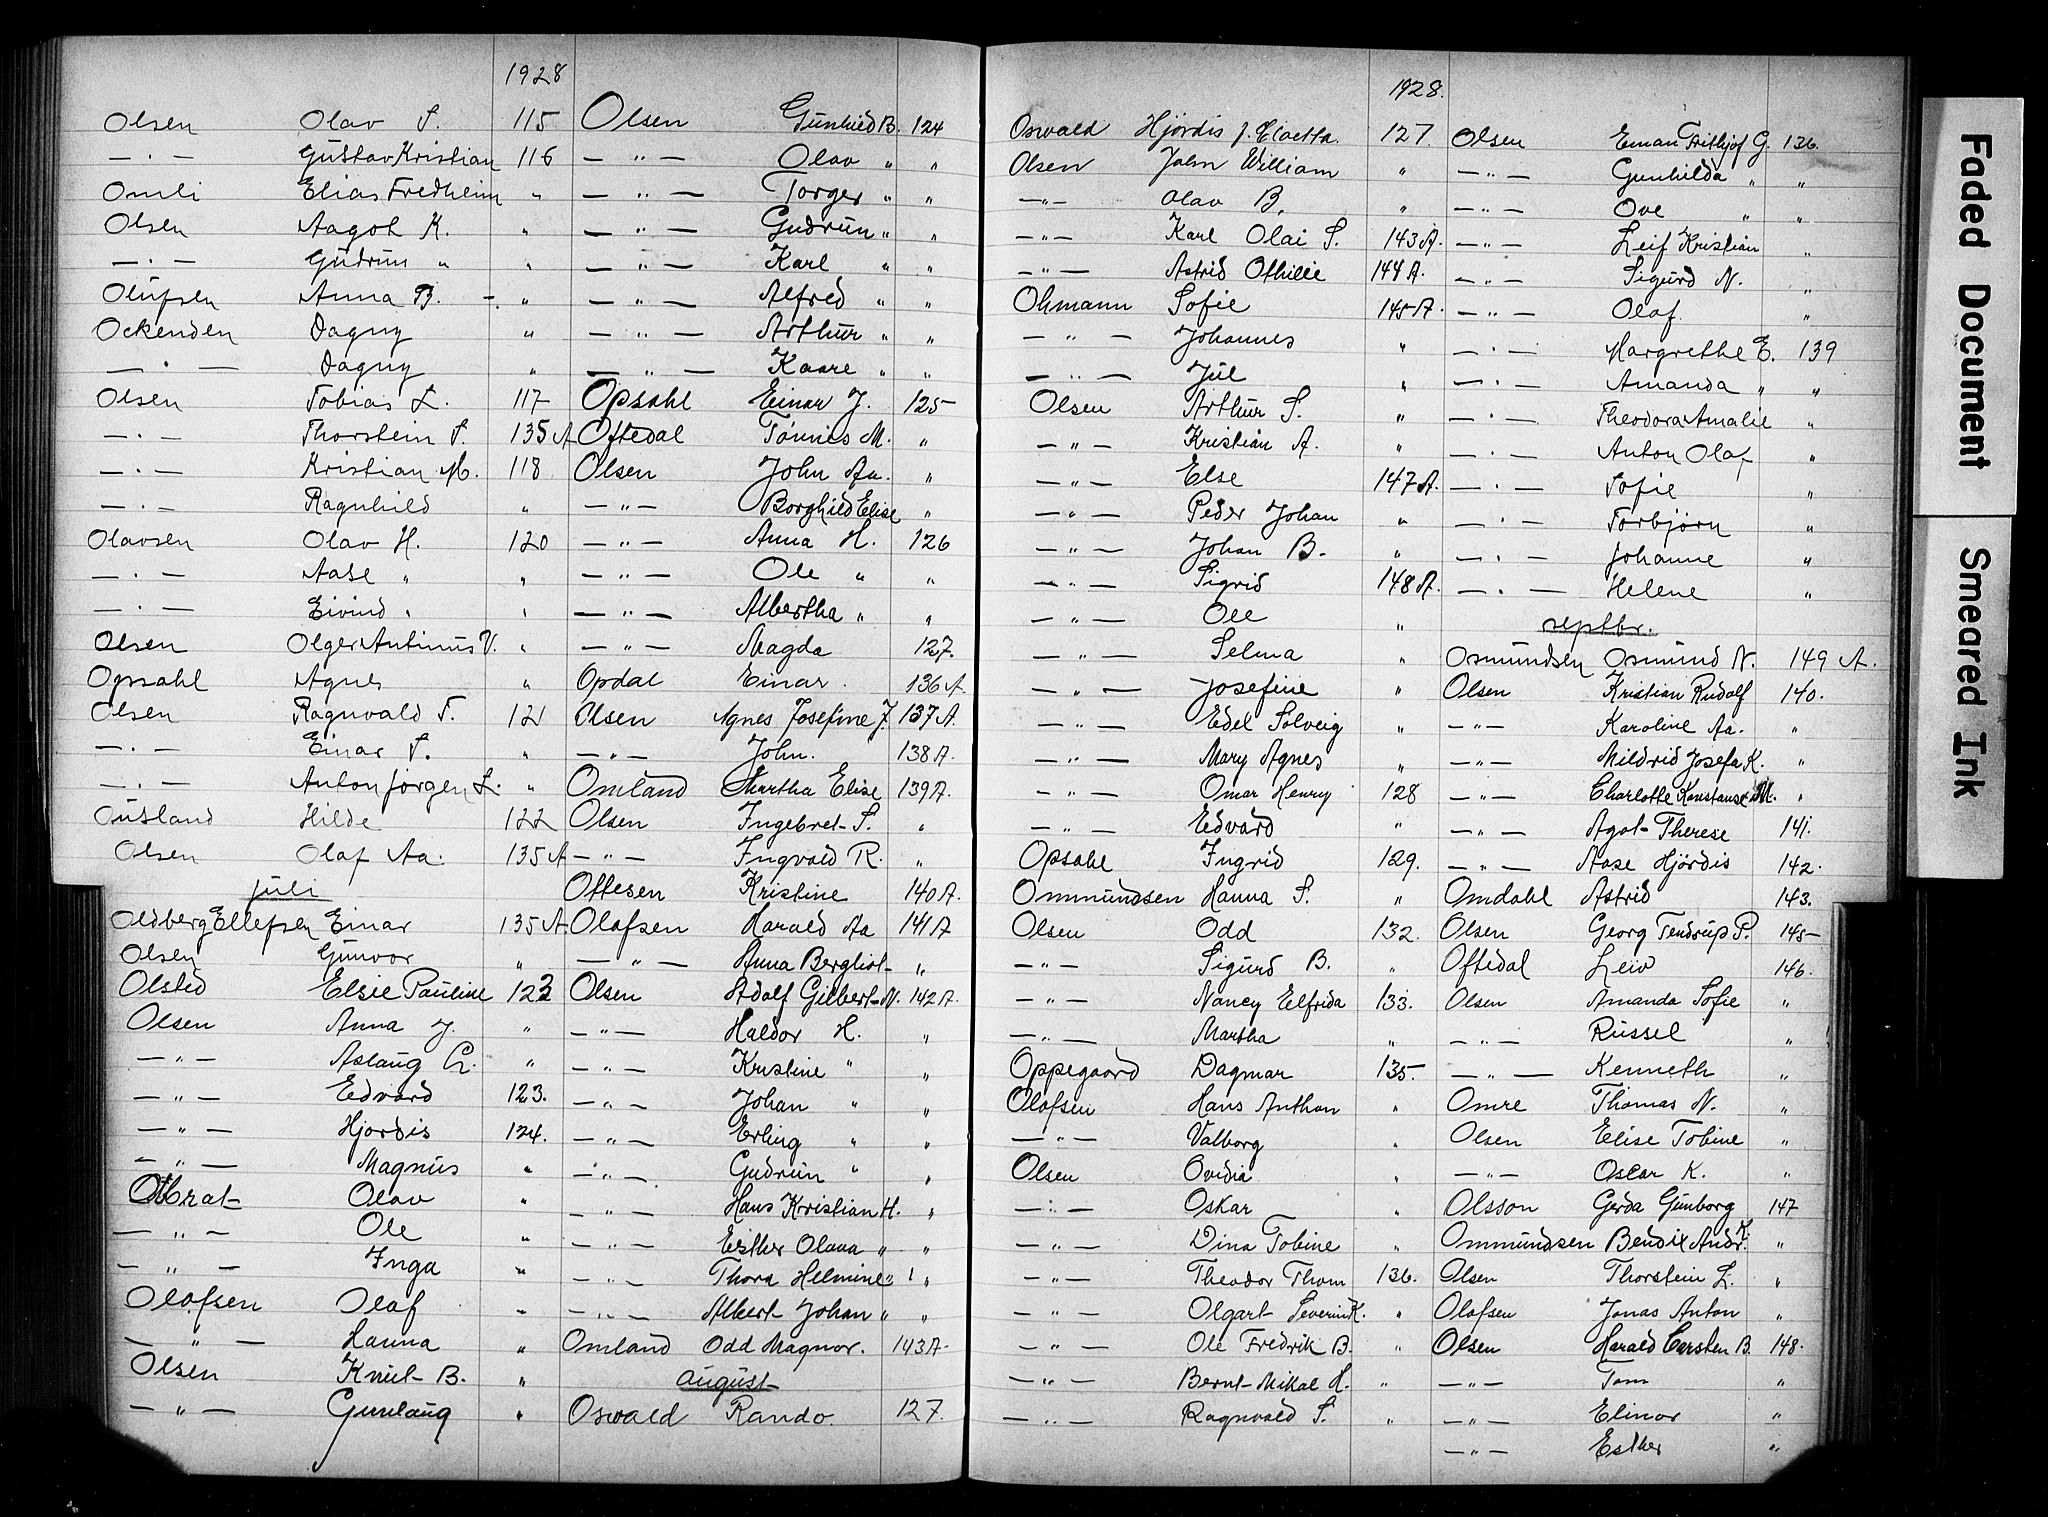 1928
Olsen Olav S. 115
— . — Gustav Kristian 116
Omli Elias Fredheim "
Olsen Aagot K. "
— . — Gudrun " "
Olufsen Anna B. - "
Ockenden Dagny "
— . — Dagny "
Olsen Tobias L. 117
— . — Thorstein S. 135 A
— . — Kristian M. 118
— . — Ragnhild "
Olavsen Olav H. 120
— . — Aase " "
— . — Eivind " "
Olsen Olger Antinius V. "
Opsahl Agnes "
Olsen Ragnvald T. 121
— . — Einar S. "
— . — Anton Jørgen L. "
Outland Hilde 122
Olsen Olaf Aa. 135 A
juli
Oldberg Ellefsen Einar 135 A
Olsen Gunvor "
Olsted Elsie Pauline 123
Olsen Anna J. "
— " — Aslaug Ch. "
— " — Edvard 123.
— " — Hjordis 124.
— " — Magnus "
Olav "
— " — Ole "
— " — Inga "
Olofsen Olaf "
— " — Hanna "
Olsen Knut B. "
— " — Gunlaug "
Olsen Gunhild B. 124
— " — Olav " "
— " — Torger " "
— " — Gudrun " "
— " — Karl " "
— " — Alfred " "
— " — Arthur " "
— " — Kaare " "
Opsahl Einar J. 125
Oftedal Tønnes M. "
Olsen John Aa. "
— " — Borghild Elise "
— " — Anna H. 126
— " — Ole " "
— " — Albertha " "
— " — Magda 127.
Opdal Einar. 136 A
Olsen Agnes Josefine J. 137 A.
— " — John. 138 A.
Omland Martha Elise 139 A.
Olsen Ingebret S. "
— " — Ingvald R. "
Ottesen Kristine 140 A.
Olafsen Harald Aa 141 A
— " — Anna Bergliot "
Olsen Adolf Gilbert N. 142 A.
— " — Haldor H. "
— " — Kristine " "
— " — Johan " "
— " — Erling " "
— " — Gudrun " "
— " — Hans Kristian H. "
— " — Esther Olava " "
— " — Thora Helmine " "
— " — Albert Johan " "
Omland Odd Magnor. 143 A.
august
Oswald Rando. 127.
1928.
Oswald Hjørdis J. Cloetta. 127.
Olsen John William "
— " — Olav B. "
— " — Karl Olai S. 143 A.
— " — Astrid Othilie 144 A.
Ohmann Sofie 145 A.
— " — Johannes "
— " — Jul "
Olsen Arthur S. "
— " — Kristian A. "
— " — Else 147 A.
— " — Peder Johan "
— " — Johan B. "
— " — Sigrid 148 A.
— " — Ole "
— " — Selma "
— " — Josefine "
— " — Edel Solveig "
— " — Mary Agnes "
— " — Omar Henry 128
— " — Edvard "
Opsahl Ingrid 129.
Ommundsen Hanna S. "
Olsen Odd 132.
— " — Sigurd B. "
— " — Nancy Elfrida 133.
— " — Martha "
Oppegaard Dagmar 135.
Olofsen Hans Anthon "
— " — Valborg "
Olsen Ovidia "
— " — Oskar "
— " — Dina Tobine "
— " — Theodor Thom 136.
— " — Olgart Severin K. "
— " — Ole Fredrik B. "
— " — Bernt Mikal H. "
— " — Ragnvald S. "
Olsen Einar Frithjof G. 136.
— " — Gunhilda " "
— " — Ove " "
— " — Leif Kristian "
— " — Sigurd N. "
— " — Olaf "
— . — Margrethe E. 139
— . — Amanda " "
— . — Theodora Amalie "
— . — Anton Olaf "
— . — Sofie "
— . — Torbjørn "
— . — Johanne "
— . — Helene "
septbr.
Osmundsen Osmund N. 149 A.
Olsen Kristian Rudolf 140.
— " — Karoline Aa. "
— " — Mildrid Josefa K. "
— " — Charlotte Konstanse M. "
— " — Agot Therese 141.
— " — Aase Hjørdis 142.
Omdahl Astrid 143.
Olsen Georg Tendrup P. 145
Oftedal Leiv 146.
Olsen Amanda Sofie "
— " — Russel "
— " — Kenneth "
Omre Thomas N. "
Olsen Elise Tobine "
— " — Oscar K. "
Olsson Gerda Gunborg 147
Ommundsen Bendix Andr. K. "
Olsen Thorstein L. "
Olafsen Jonas Anton "
Olsen Harald Carsten B. 148.
— " — Tom "
— " — Elinor "
— " — Esther "
Faded Document
Smeared Ink